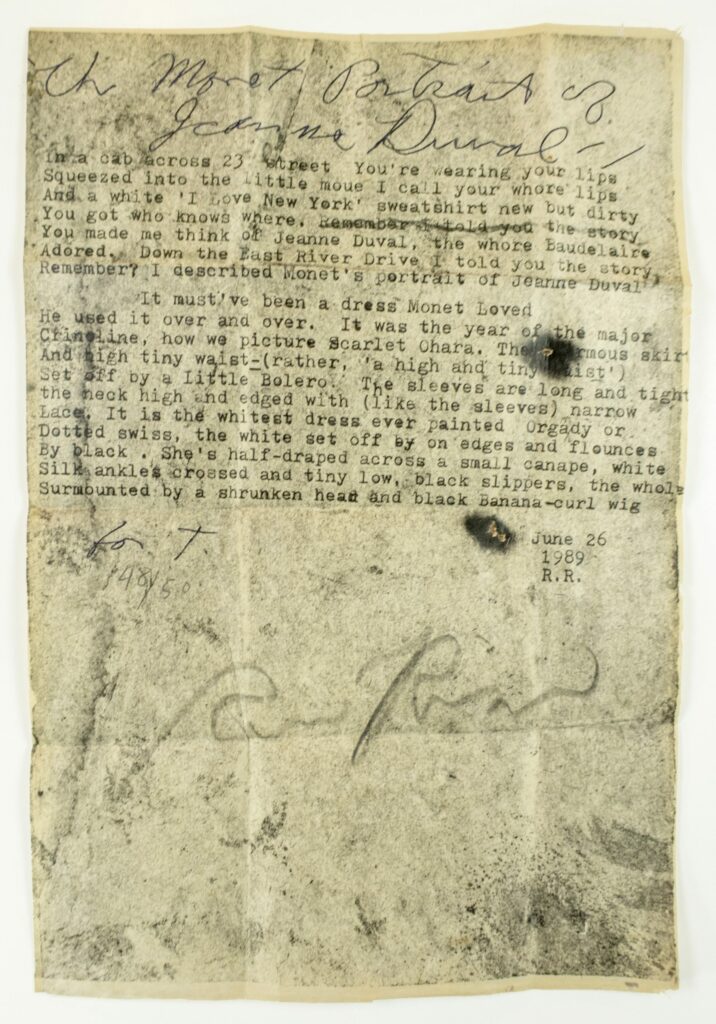 Monet Portrait of
Jeanne Duval -
In a cab across 23 street You're wearing your lips
Squeezed into the little moue I call your whore lips
And a white 'I Love New York' sweatshirt new but dirty
You got who knows where. Remember I told you the story
You made me think of Jeanne Duval, the whore Baudelaire
Adored. Down the East River Drive I told you the story,
Remember? I described Monet's portrait of Jeanne Duval
It must've been a dress Monet Loved
He used it over and over. It was the year of the major
Crinoline, how we picture Scarlet Ohara. The skir
And high tiny waist-(rather, 'a high and tiny waist')
Set off by a Little Bolero. The sleeves are long and tight
the neck high and edged with (like the sleeves) narrow
Lace. It is the whitest dress ever painted Orgady or
Dotted swiss, the white set off by on edges and flounces
By black . She's half-draped across a small canape, white
Silk ankles crossed and tiny low, black slippers, the whole
Surmounted by a shrunken head and black Banana-curl wig
for T.
June 26
1989
R.R.
48/50